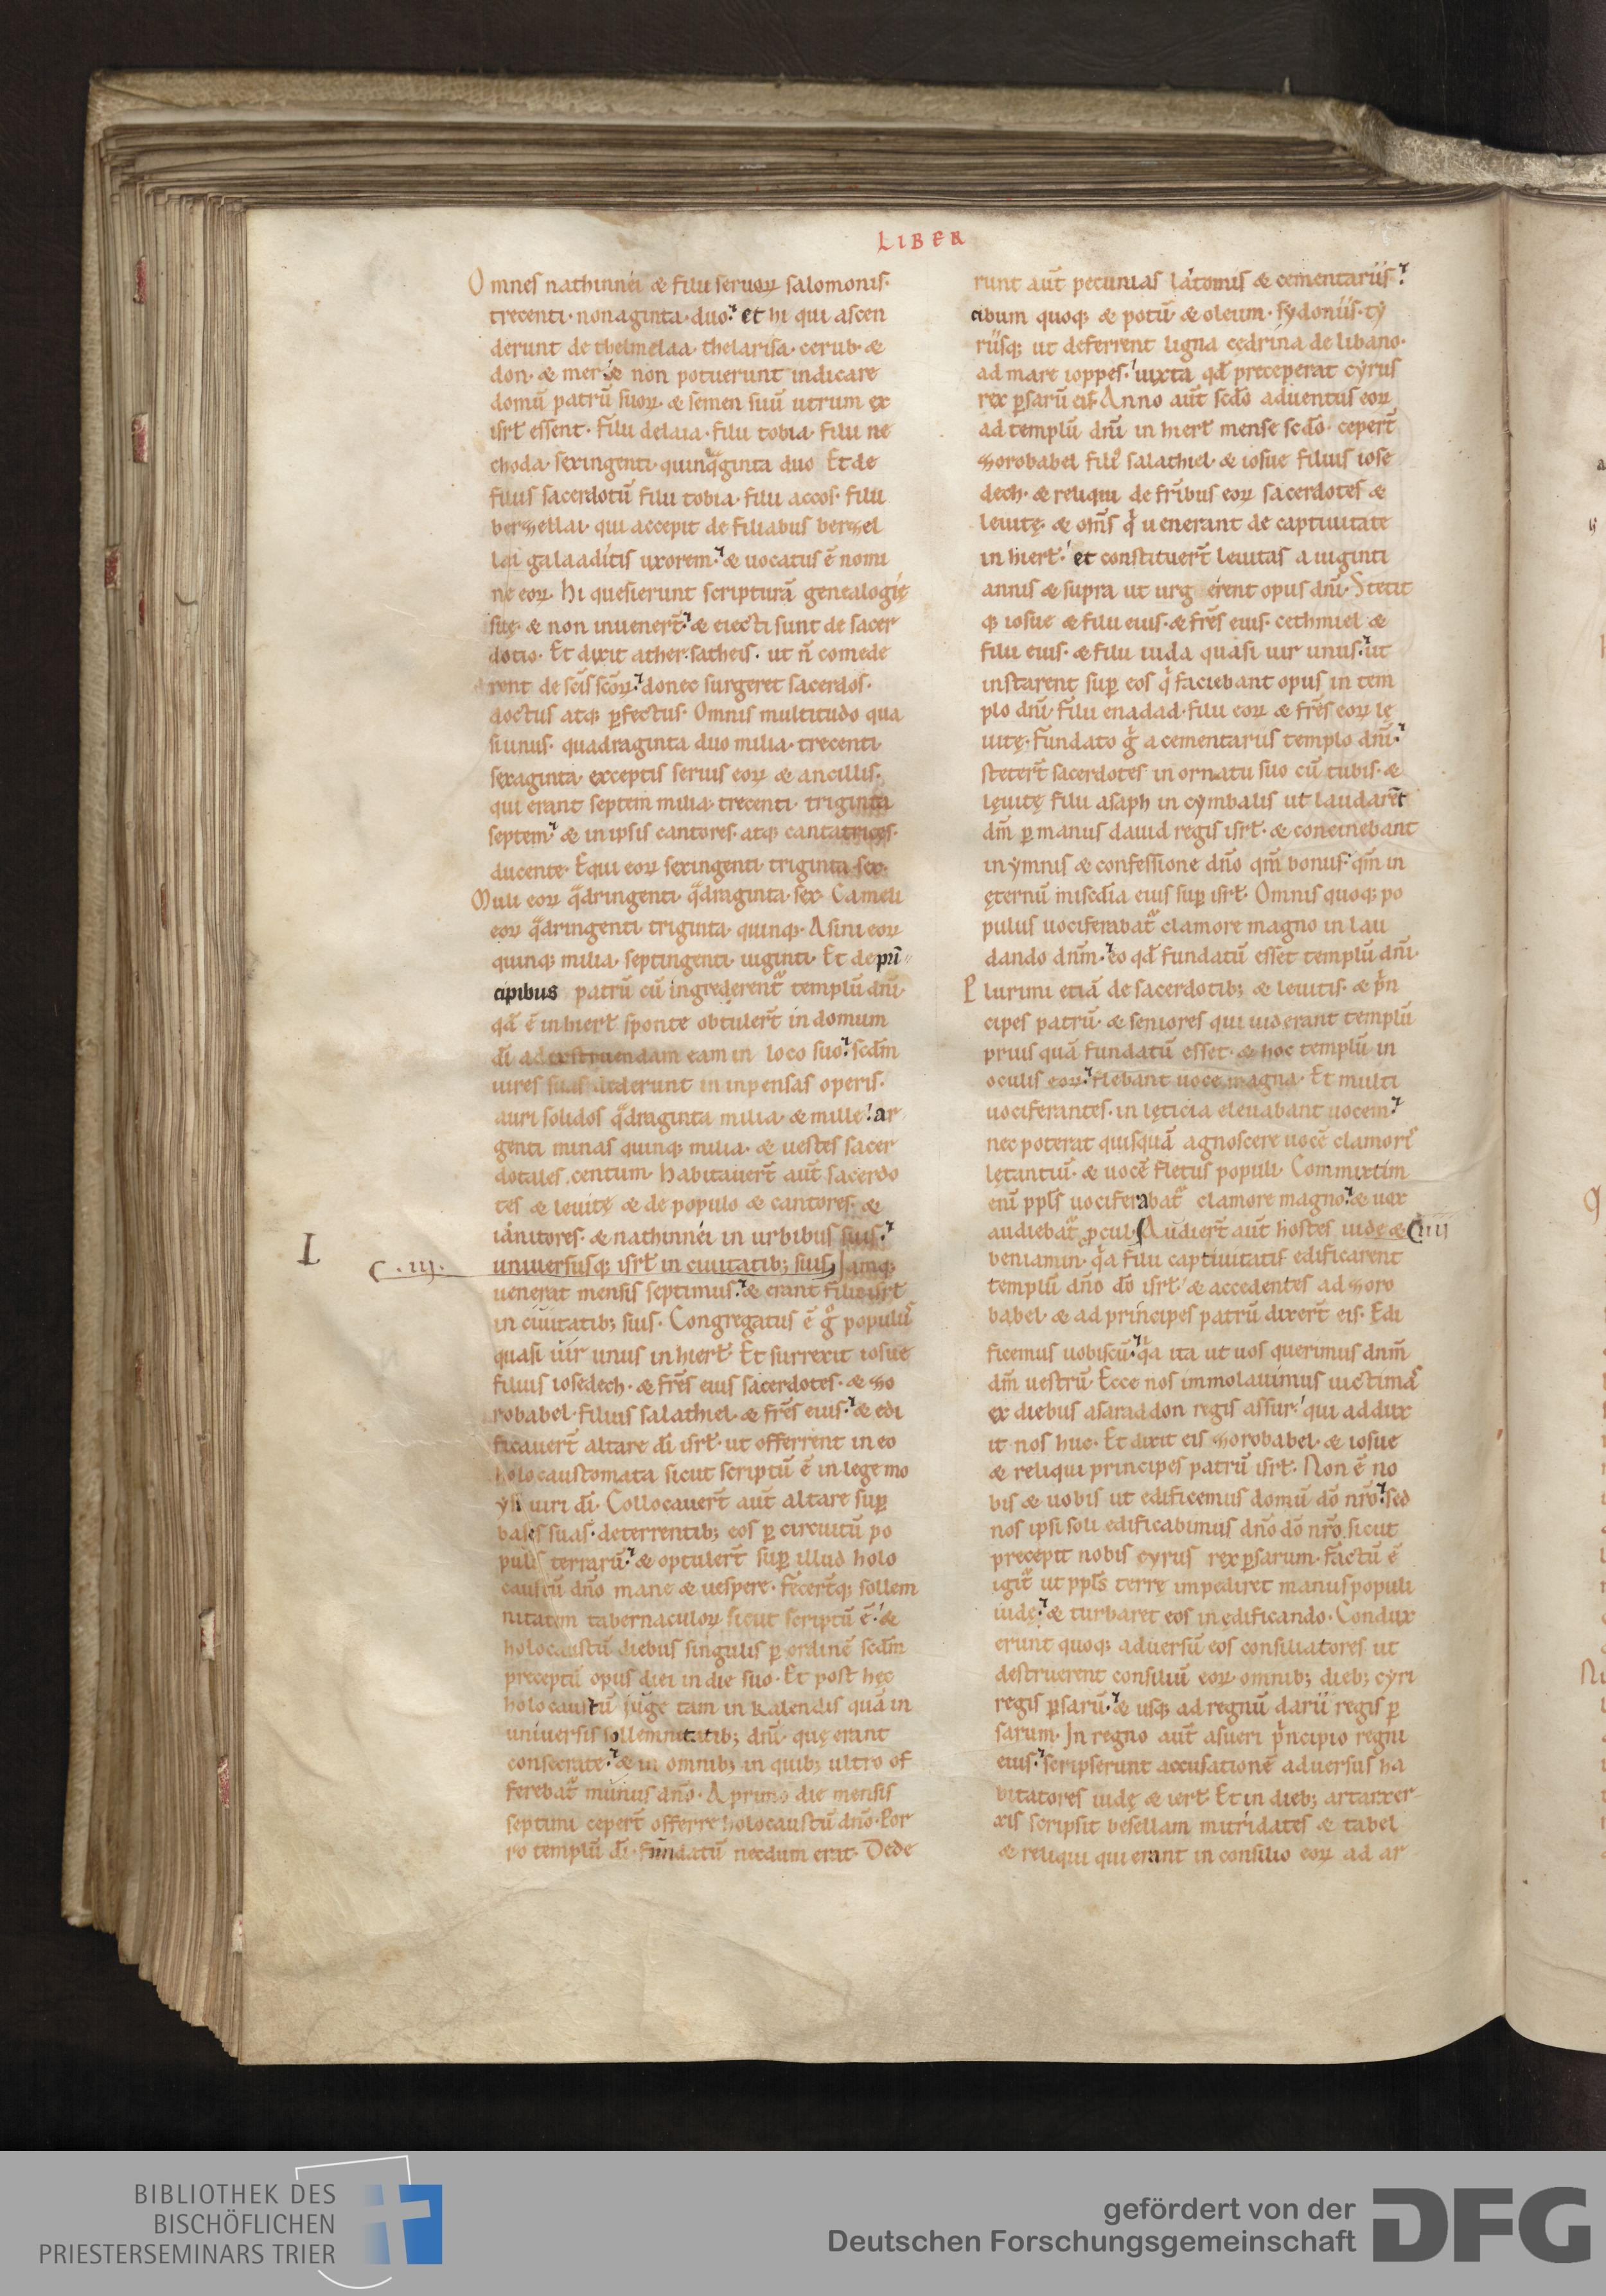 LIBER
Omnes nathinnei & filii seruoꝝ salomonis·
trecenti· nonaginta· duo· et hi qui ascen
derunt de thelmelaa· thelarisa· cerub· &
don· & mer· & non potuerunt indicare
domū patrū suoꝝ· & semen suū utrum ex
isrł essent· Filii delaia· filii tobia· filii ne
choda· sexingenti· quinqͣginta duo Et de
filiis sacerdotū filii tobia· filii accos· filii
berzellai· qui accepit de filiabus berzel
lai galaaditis uxorem· & uocatus ē nomi
ne eoꝝ· hi quesierunt scripturā genealogię
suę· & non inuenert̄· & eiecti sunt de sacer
dotio· Et dixit athersatheis· ut ñ comede
rent de scīs scōꝝ· donec surgeret sacerdos·
doctus atq; ꝑfectus· Omnis multitudo qua
si unus· quadraginta duo milia· trecenti
sexaginta· exceptis seruis eoꝝ & ancillis·
qui erant septem milia· trecenti· triginta
septem· & in ipsis cantores· atq; cantatrices·
ducente· Equi eoꝝ sexingenti· triginta sex·
Muli eoꝝ qͣdringenti· qͣdraginta· sex· Cameli
eoꝝ qͣdringenti triginta quinq;· Asini eoꝝ
quinq; milia· septingenti· uiginti· Et de pri̅
cipibus patrū cū ingrederent᷑ templū dn̄i·
qd̄ ē in hierł sponte obtulert̄ in domum
dī ad exstruendam eam in loco suo· scd̄m
uires suas dederunt in inpensas operis·
auri solidos qͣdraginta milia· & mille· ar
genti minas quinq; milia· & uestes sacer
dotales centum· habitauert̄ aut̄ sacerdo
tes & leuitę & de populo & cantores· &
ianitores· & nathinnei in urbibus suis·
I
C . iij. uniuersusq; isrł in ciuitatib; suis Iamq;
uenerat mensis septimus· & erant filii isrł
in ciuitatib; suis· Congregatus ē gͦ populus
quasi uir unus in hierł· Et surrexit iosue
filius iosedech· & fr̄es eius sacerdotes· & zo
robabel· filius salathiel· & fr̄es eius· & edi
ficauert̄ altare dī isrł· ut offerrent in eo
holocaustomata sicut scriptū ē in lege mo
ysi uiri dī· Collocauert̄ aut̄ altare suꝑ
bases suas· deterrentib; eos ꝑ circuitū po
pulis terrarū· & optulert̄ suꝑ illud holo
caustū dn̄o mane & uespere· fecert̄q; sollem
nitatem tabernaculoꝝ sicut scriptū ē· &
holocaustū diebus singulis ꝑ ordinē scd̄m
preceptū opus diei in die suo· Et post hęc
holocaustū iuge tam in kalendis quā in
uniuersis sollemnitatib; dn̄i· quę erant
consecrate· & in omnib; in quib; ultro of
ferebat᷑ munus dn̄o· A primo die mensis
septimi cepert̄ offerre holocaustū dn̄o· Por
ro templū dī· fundatū necdum erat· Dede
runt aut̄ pecunias latomis & cementariis·
cibum quoq; & potū & oleum· sydoniis· ty
riisq; ut deferrent ligna cedrina de libano·
ad mare ioppes· iuxta qd̄ preceperat cyrus
rex ꝑsarū eis· Anno aut̄ scd̄o aduentus eoꝝ
ad templū dn̄i in hierł mense scd̄o· cepert̄
zorobabel fili᷒ salathiel· & iosue filius iose
dech· & reliqui de fr̄ibus eoꝝ sacerdotes &
leuitę· & om̄s qͥ uenerant de captiuitate
in hierł· et constituert̄ leuitas a uiginti
annis & supra ut urg erent opus dn̄i· Stetit
q; iosue & filii eius· & fr̄es eius· cethmiel &
filii eius· & filii iuda quasi uir unus· ut
instarent suꝑ eos qͥ faciebant opus in tem
plo dn̄i· filii enadad· filii eoꝝ & fr̄es eoꝝ le
uitę· Fundato gͦ a cementariis templo dn̄i·
stetert̄ sacerdotes in ornatu suo cū tubis· &
lęuitę filii asaph in cymbalis ut laudarēt
dm̄ ꝑ manus dauid regis isrł· & concinebant
in ymnis & confessione dn̄o qm̄ bonus· qm̄ in
ęternū mīscd̄ia eius suꝑ isrł· Omnis quoq; po
pulus uociferabat᷑ clamore magno in lau
dando dn̄m· eo qd̄ fundatū esset templū dn̄i·
Plurimi etiā de sacerdotib; & leuitis· & pͥn
cipes patrū· & seniores qui uiderant templū
prius quā fundatū esset· & hoc templū in
oculis eoꝝ· flebant uoce magna· Et multi
uociferantes· in lęticia eleuabant uocem·
nec poterat quisquā agnoscere uocē clamoris
lętantiū· & uocē fletus populi· Commixtim
eni̅ ppl̄s uociferabat᷑ clamore magno· & uox
audiebat᷑ procul· Audiert̄ aut̄ hostes iudę & C iiij
beniamin· qͣa filii captiuitatis edificarent
templū dn̄o dō isrł· & accedentes ad zoro
babel· & ad principes patrū dixert̄ eis· Edi
ficemus uobiscū· qͣa ita ut uos querimus dn̄m
dm̄ uestrū· Ecce nos immolauimus uictimas
ex diebus asaraddon regis assur· qui addux
it nos huc· Et dixit eis zorobabel· & iosue
& reliqui principes patrū isrł· Non ē no
bis & uobis ut edificemus domū dō nr̄o· sed
nos ipsi soli edificabimus dn̄o dō nr̄o· sicut
precepit nobis cyrus rex ꝑsarum· Factū ē
igit᷑ ut ppl̄s terrę impediret manus populi
iudę· & turbaret eos in ędificando· Condux
erunt quoq; aduersū eos consiliatores ut
destruerent consiliū eoꝝ omnib; dieb; cyri
regis ꝑsarū· & usq; ad regnū darii regis ꝑ
sarum· In regno aut̄ asueri pͥncipio regni
eius· scripserunt accusationē aduersus ha
bitatores iudę & ierł· Et in dieb; artarxer-
xis scripsit besellam mitridates & tabel
& reliqui qui erant in consilio eoꝝ ad ar
BIBLIOTHEK DES
BISCHÖFLICHEN
PRIESTERSEMINARS TRIER
gefördert von der
Deutschen Forschungsgemeinschaft
DFG